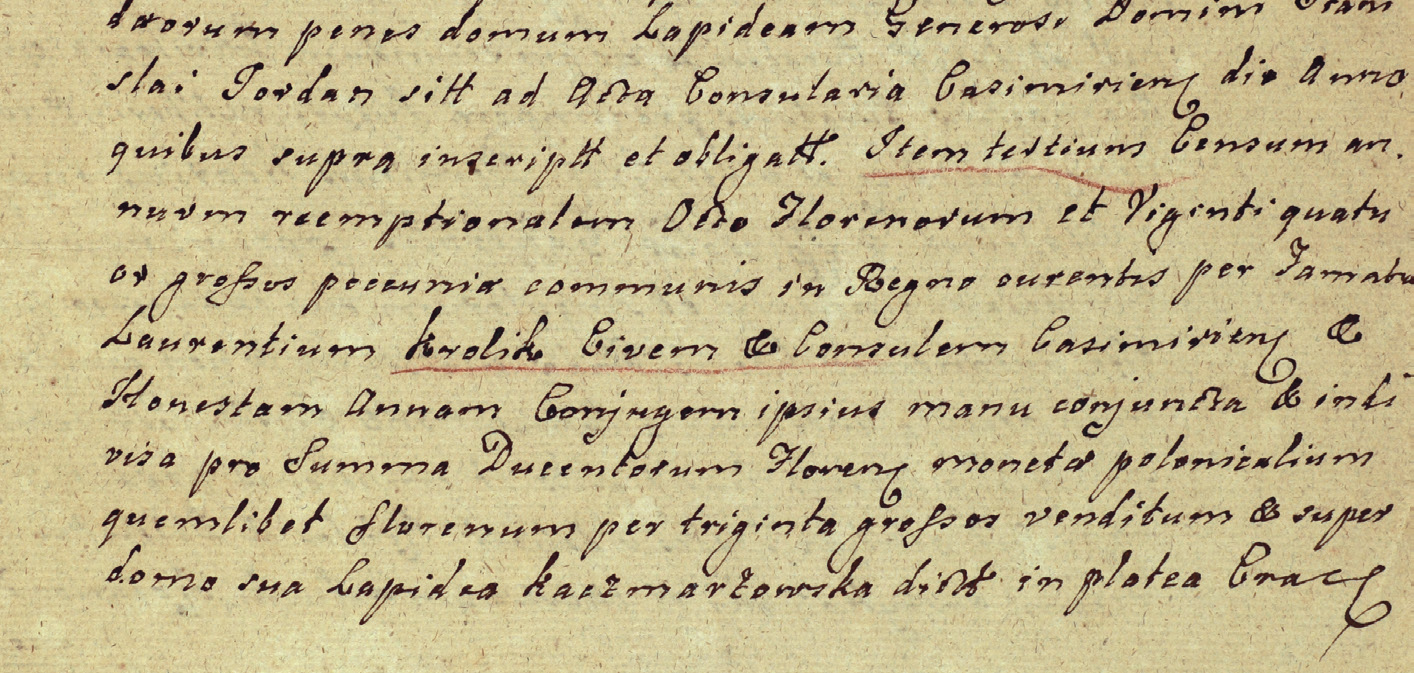 penes domum Lapideam Generosi Domini Stani
slai Jordan sitt ad Acta Consularia Casimirien die Anno
quibus supra inscriptt et obligatt. Item tertium Censum an.
nuum reemptionalem Octo Florenorum et Viginti quatu
or grossos peccuniæ communis in Regno curentis per Famatu
Laurentium Krolik Civem & Consulem Casimirien &
Honestam Annam Conjugem ipsius manu conjuncta & indi
visa pro Summa Ducentorum Floren monetæ polonicalium
quemlibet florenum per triginta grossos venditum & super
domo sua Lapidea Kaczmarzowska dictt in platea Crac